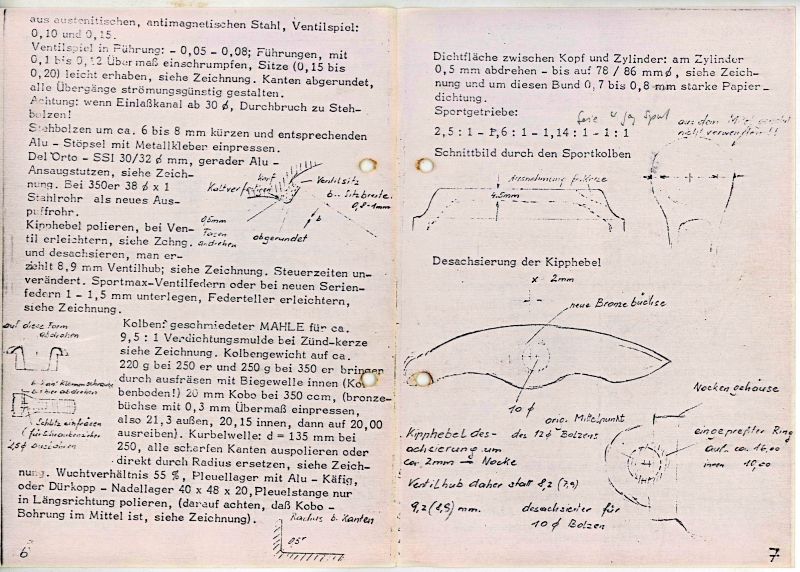 aus austenitischen, antimagnetischen Stahl, Ventilspiel:
0,10 und 0,15.
Ventilspiel in Führung: - 0,05 - 0,08; Führungen, mit
0,1 bis 0,12 Übermaß einschrumpfen, Sitze (0,15 bis
0,20) leicht erhaben, siehe Zeichnung. Kanten abgerundet,
alle Übergänge strömungsgünstig gestalten.
Achtung: wenn Einlaßkanal ab 30 ϕ, Durchbruch zu Steh-
bolzen!
Stehbolzen um ca. 6 bis 8 mm kürzen und entsprechenden
Alu - Stöpsel mit Metallkleber einpressen.
Del'Orto - SSI 30/32 ϕ mm, gerader Alu -
Ansaugstutzen, siehe Zeich-
nung. Bei 350er 38 ϕ x 1
Stahlrohr als neues Aus-
puffrohr.
Kipphebel polieren, bei Ven-
til erleichtern, siehe Zchng.
und desachsieren, man er-
zielt 8,9 mm Ventilhub; siehe Zeichnung. Steuerzeiten un-
verändert. Sportmax-Ventilfedern oder bei neuen Serien-
federn 1 - 1,5 mm unterlegen, Federteller erleichtern,
siehe Zeichnung.
Kopf
Ventilsitz
b = Sitzbreite
0,8-1mm
0,5mm
Fasen
andrehen
abgerundet
b
auf diese Form
abdrehen
Schlitz einfräsen
Kolben: geschmiedeter MAHLE für ca.
9,5 : 1 Verdichtungsmulde bei Zünd-kerze
siehe Zeichnung. Kolbengewicht auf ca.
220 g bei 250 er und 250 g bei 350 er bringen
durch ausfräsen mit Biegewelle innen (Kol-
benboden!) 20 mm Kobo bei 350 ccm, (bronze-
büchse mit 0,3 mm Übermaß einpressen,
also 21,3 außen, 20,15 innen, dann auf 20,00
ausreiben). Kurbelwelle: d = 135 mm bei
250, alle scharfen Kanten auspolieren oder
direkt durch Radius ersetzen, siehe Zeich-
nung. Wuchtverhältnis 55 %, Pleuellager mit Alu - Käfig,
oder Dürkopp - Nadellager 40 x 48 x 20, Pleuelstange nur
in Längsrichtung polieren, (darauf achten, daß Kobo -
Bohrung im Mittel ist, siehe Zeichnung).
Radius b. Kanten
0,5r
6
Dichtfläche zwischen Kopf und Zylinder: am Zylinder
0,5 mm abdrehen - bis auf 78 / 86 mm ϕ, siehe Zeich-
nung und um diesen Bund 0,7 bis 0,8 mm starke Papier-
dichtung.
Sportgetriebe:
2,5 : 1 - 1,6 : 1 - 1,14 : 1 - 1 : 1
Schnittbild durch den Sportkolben
Ausnehmung f. Kerze
4,5mm
Desachsierung der Kipphebel
x 2mm
neue Bronzebüchse
10 ϕ
orig. Mittelpunkt
des 12ϕ Bolzens
Kipphebel des-
achsierung um
ca. 2mm → Nocke
Ventilhub daher statt 8,2 (7,9)
9,2 (8,9) mm.
desachsierter für
10 ϕ Bolzen
Nockengehäuse
eingepreßter Ring
auß. ca 16,00
innen 10,00
7